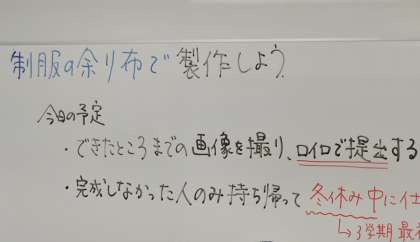 制服の余り布で製作しよう
今日の予定
・できたところまでの画像を撮り、ロイロで提出する
・完成しなかった人のみ持ち帰って冬休み中に仕
↳3学期最初